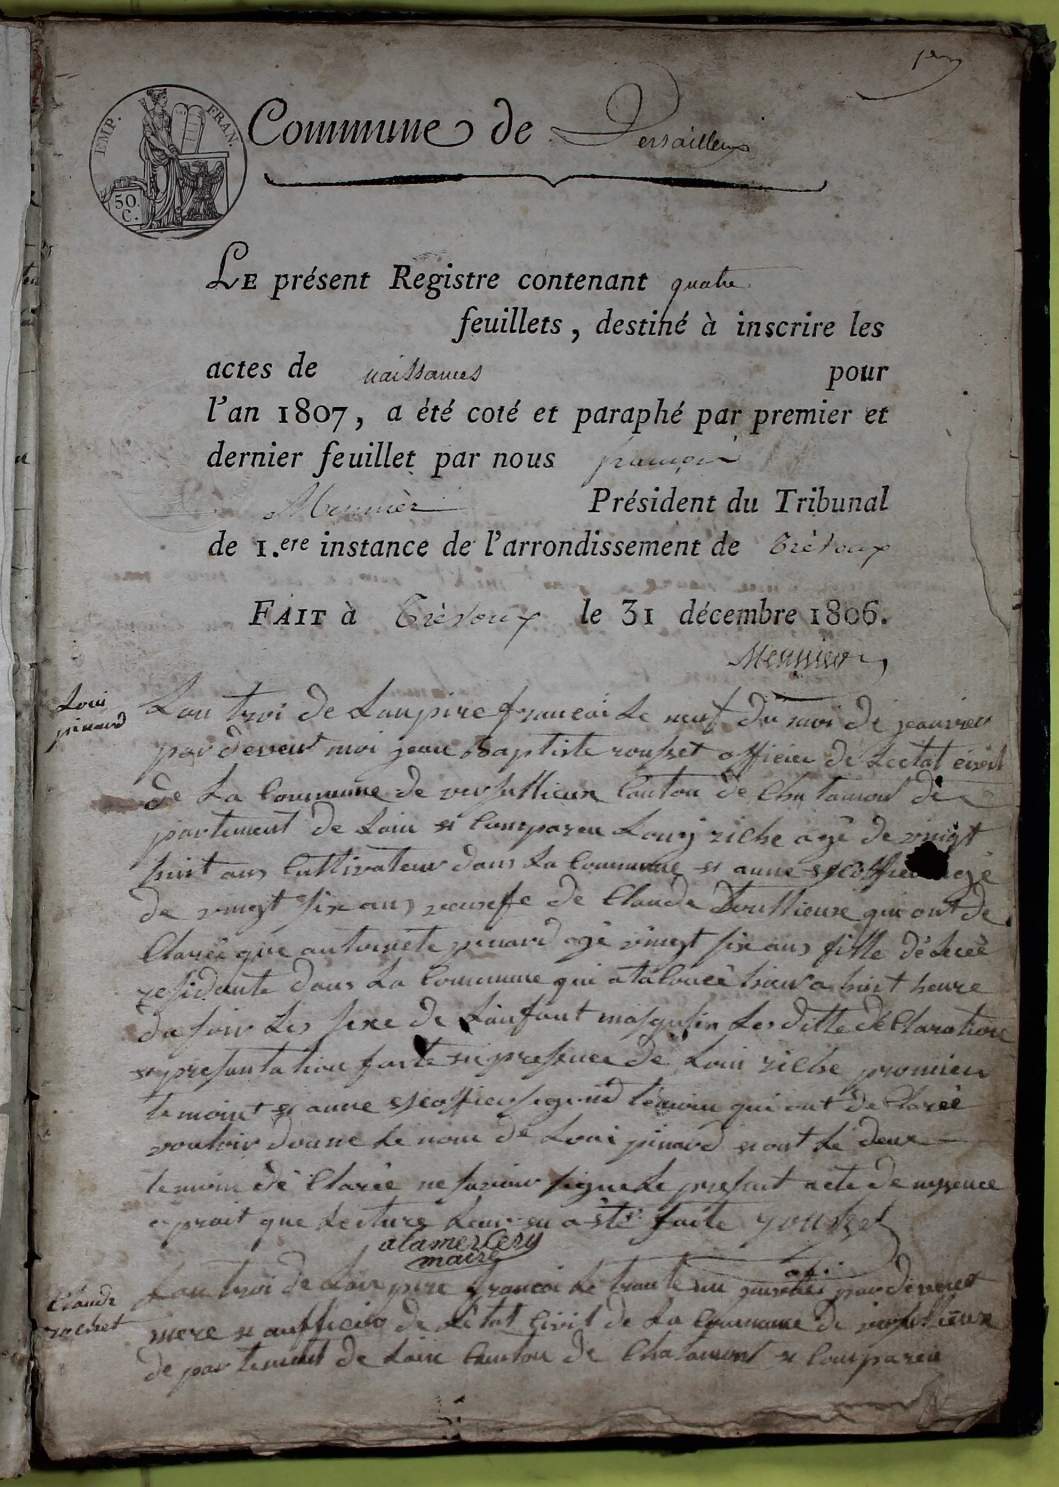 1er
EMP. FRAN.
50 C.
Commune de Versailleux
LE présent Registre contenant quatre
feuillets, destiné à inscrire les
actes de naissances pour
l'an 1807, a été coté et paraphé par premier et
dernier feuillet par nous françois
Meunier Président du Tribunal
de 1.ere instance de l'arrondissement de Trévoux
FAIT à Trévoux le 31 décembre 1806.
Meunier
Loui
pinard
Lan troi de Lanpire francoi Le neuf du moi de jeanvier
par devent moi jean Baptiste rousset officier de Lectat civil
de La Commune de versallieux Canton de Chalamont de
partement de Lain et Comparen Louij riche agé de vingt
huit ans Cultivateur dans La Commune et anne agé
de vingt six ans veusefe de Claude qui ont de
Clarée que antoinete pinard agé vingt six ans fille
residante dans La Commune qui at alouceé hier a huit heure
du soir Les sexe de Lanfant masqulin Les ditte de Claration
et presantation faite en presence de Loui riche promier
temoint et anne segond temoin qui ont de Clarée
vouloir donne Le nom de Loui pinard et ont Le deux
temoin dé Clarée ne savoir signe Le presant acte de nessence
aprait que Lecture Leur en a été faite rousset
alamercery
maire
Claude
rochet
Lan troi de Lanpire francoi Le trante un janvier par devent
mere et aufficier de Létat Civil de La Commune de versallieux
de partement de Lain Canton de Chalamont et Comparen